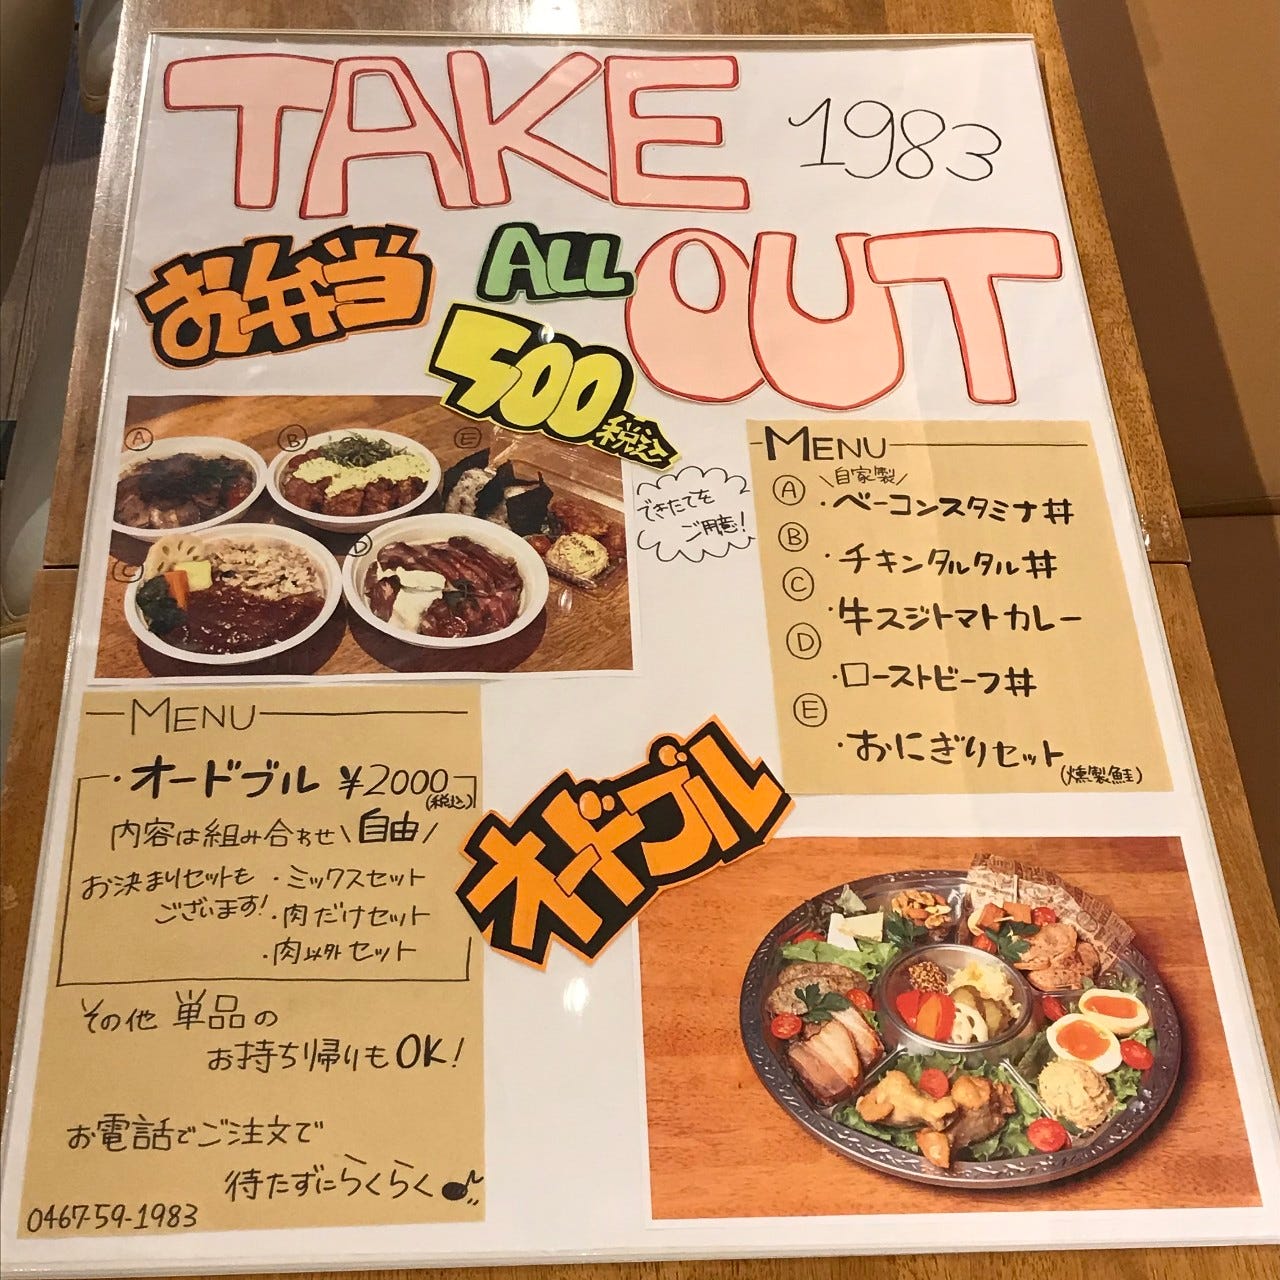 TAKE
1983
OUT
お弁当
ALL
500
税込
A
B
E
C
D
できたてを
ご用意!
MENU
自家製
A ・ベーコンスタミナ丼
B ・チキンタルタル丼
C ・牛スジトマトカレー
D ・ローストビーフ丼
E ・おにぎりセット
(燻製鮭)
MENU
・オードブル ¥2000
(税込)
内容は組み合わせ\自由/
お決まりセットも
ございます!
・ミックスセット
・肉だけセット
・肉以外セット
その他 単品の
お持ち帰りもOK!
お電話でご注文で
待たずにらくらく♪
0467-59-1983
オードブル